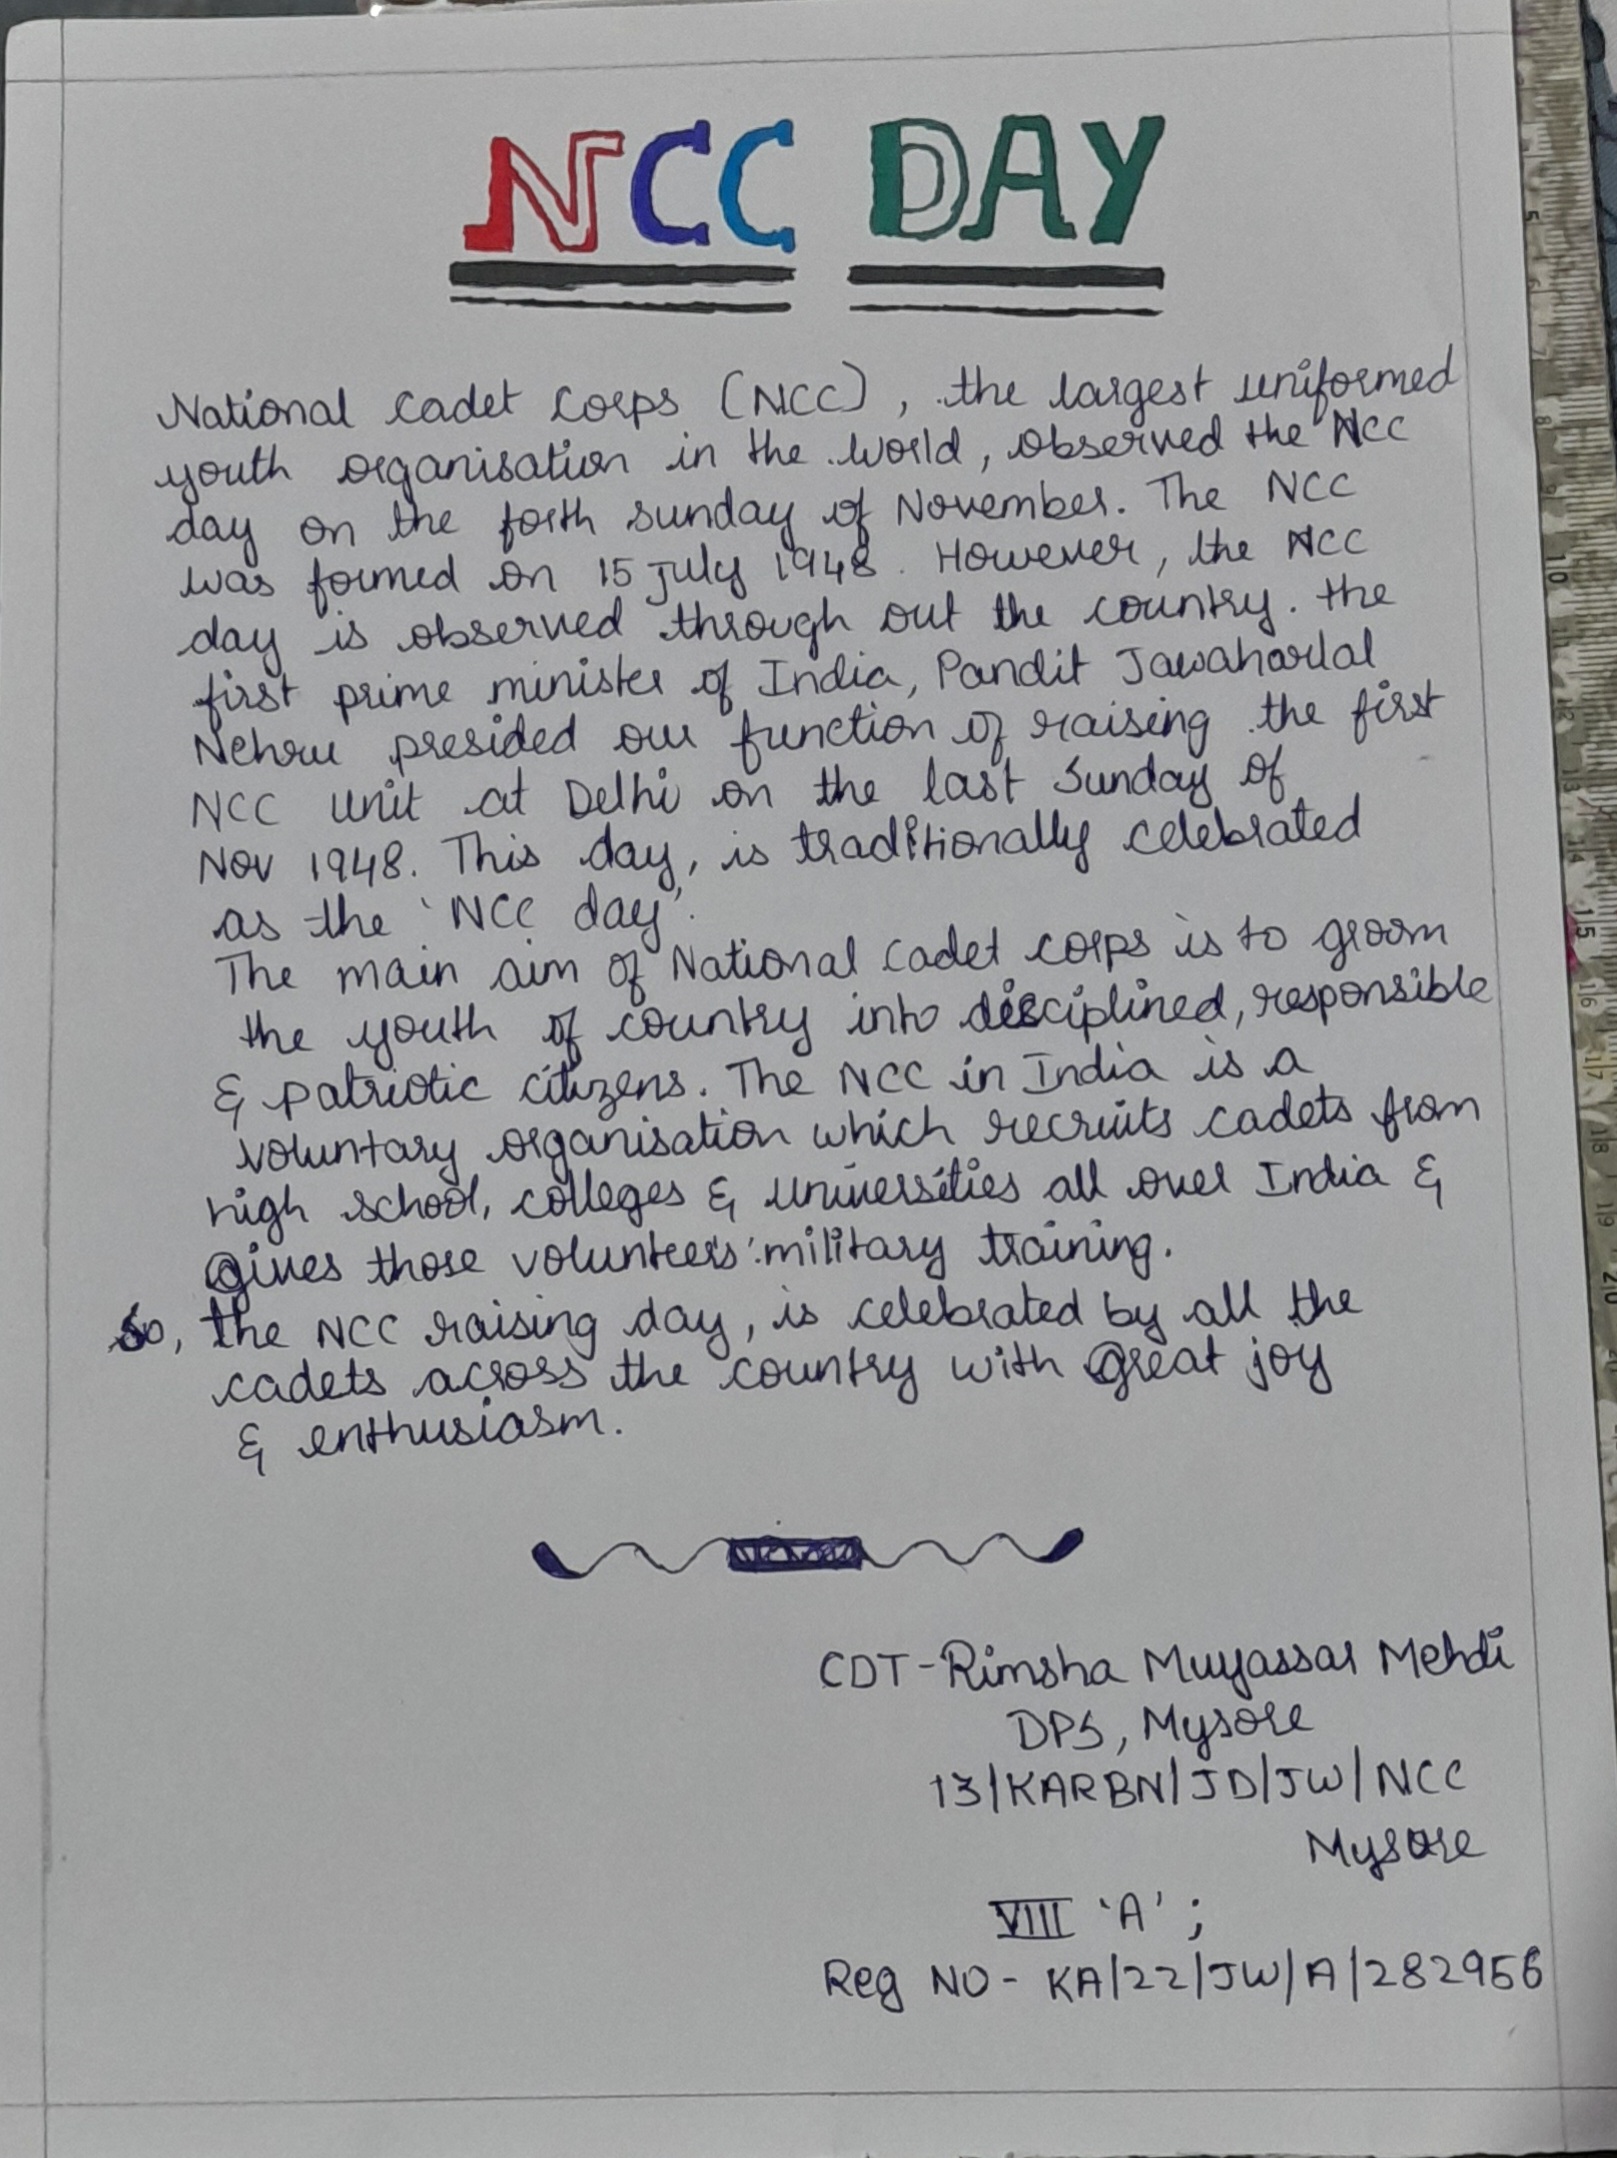 NCC DAY
National Cadet Corps (NCC), the largest uniformed
youth organisation in the world, observed the NCC
day on the forth sunday of November. The NCC
was formed on 15 july 1948. However, the NCC
day is observed through out the country. the
first prime minister of India, Pandit Jawaharlal
Nehru presided our function of raising the first
NCC unit at Delhi on the last Sunday of
Nov 1948. This day, is traditionally celebrated
as the 'NCC day'.
The main aim of National Cadet corps is to groom
the youth of country into disciplined, responsible
& patriotic citizens. The NCC in India is a
voluntary organisation which recruits cadets from
high school, colleges & universities all over India &
Gives those volunteers military training.
So, the NCC raising day, is celebrated by all the
cadets across the country with Great joy
& enthusiasm.
CDT-Rimsha Muyassar Mehdi
DPS, Mysore
13/KARBN/JD/JW/NCC
Mysore
VIII 'A' ;
Reg NO - KA/22/JW/A/282956
5
6
7
8
9
10
11
12
13
14
15
16
17
18
19
20